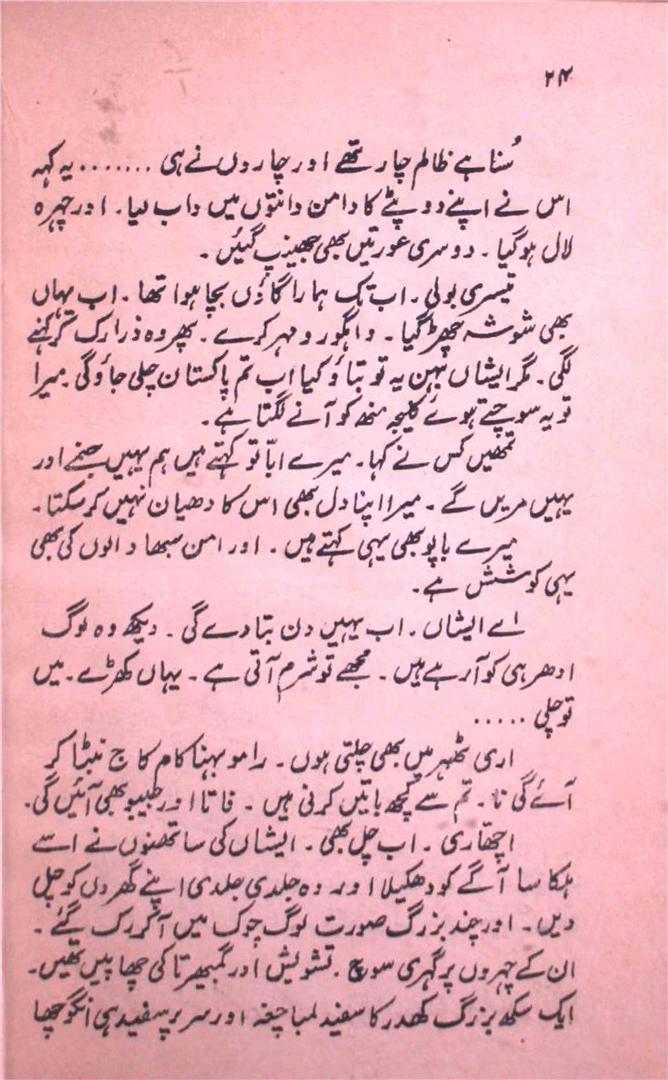 ۲۴
سُنا ہے ظالم چار تھے اور چاروں نے ہی ....... یہ کہہ
اس نے اپنے دوپٹے کا دامن دانتوں میں داب لیا۔ اور چہرہ
لال ہو گیا۔ دوسری عورتیں بھی جھینپ گئیں۔
تیسری بولی۔ اب تک ہمارا گاؤں بچا ہوا تھا۔ اب یہاں
بھی شوشہ چھڑ گیا۔ واہگورو مہر کرے۔ پھر وہ ذرا رک کر کہنے
لگی۔ مگر ایشاں بہن یہ تو بتاؤ کیا اب تم پاکستان چلی جاؤ گی۔ میرا
تو یہ سوچتے ہوئے کلیجہ منھ کو آنے لگتا ہے۔
تمھیں کس نے کہا۔ میرے ابّا تو کہتے ہیں ہم یہیں جنمے اور
یہیں مریں گے۔ میرا اپنا دل بھی اس کا دھیان نہیں کر سکتا۔
میرے باپو بھی یہی کہتے ہیں۔ اور امن سبھا والوں کی بھی
یہی کوشش ہے۔
اے ایشاں۔ اب یہیں دن بتا دے گی۔ دیکھ وہ لوگ
ادھر ہی کو آ رہے ہیں۔ مجھے تو شرم آتی ہے۔ یہاں کھڑے۔ میں
تو چلی .....
اری ٹھہر میں بھی چلتی ہوں۔ رامو بہنا کام کاج نبٹا کر
آئے گی نا۔ تم سے کچھ باتیں کرنی ہیں۔ فاتا اور طیبو بھی آئیں گی۔
اچھا ری۔ اب چل بھی۔ ایشاں کی ساتھنوں نے اسے
ہلکا سا آگے کو دھکیلا اور وہ جلدی جلدی اپنے گھروں کو چل
دیں۔ اور چند بزرگ صورت لوگ چوک میں آ کر رک گئے۔
ان کے چہروں پر گہری سوچ۔ تشویش اور گمبھیرتا کی چھاپیں تھیں۔
ایک سکھ بزرگ کھدر کا سفید لمبا چغہ اور سر پر سفید ہی انگوچھا